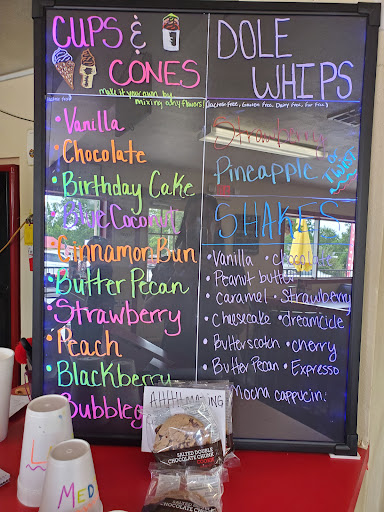 CUPS &
CONES
make it your own by
mixing any flavors!
• Vanilla
• Chocolate
• Birthday Cake
• Blue Coconut
• Cinnamon Bun
• Butter Pecan
• Strawberry
• Peach
• Blackberry
DOLE
WHIPS
Strawberry
Pineapple
or
TWIST
SHAKES
• Vanilla • chocolate
• Peanut butter
• caramel • Strawberry
• cheesecake • dreamcicle
• Butterscotch • cherry
• Butter Pecan • Expresso
mocha cappucin.
SALTED DOUBLE
CHOCOLATE CHUNK
L
MED